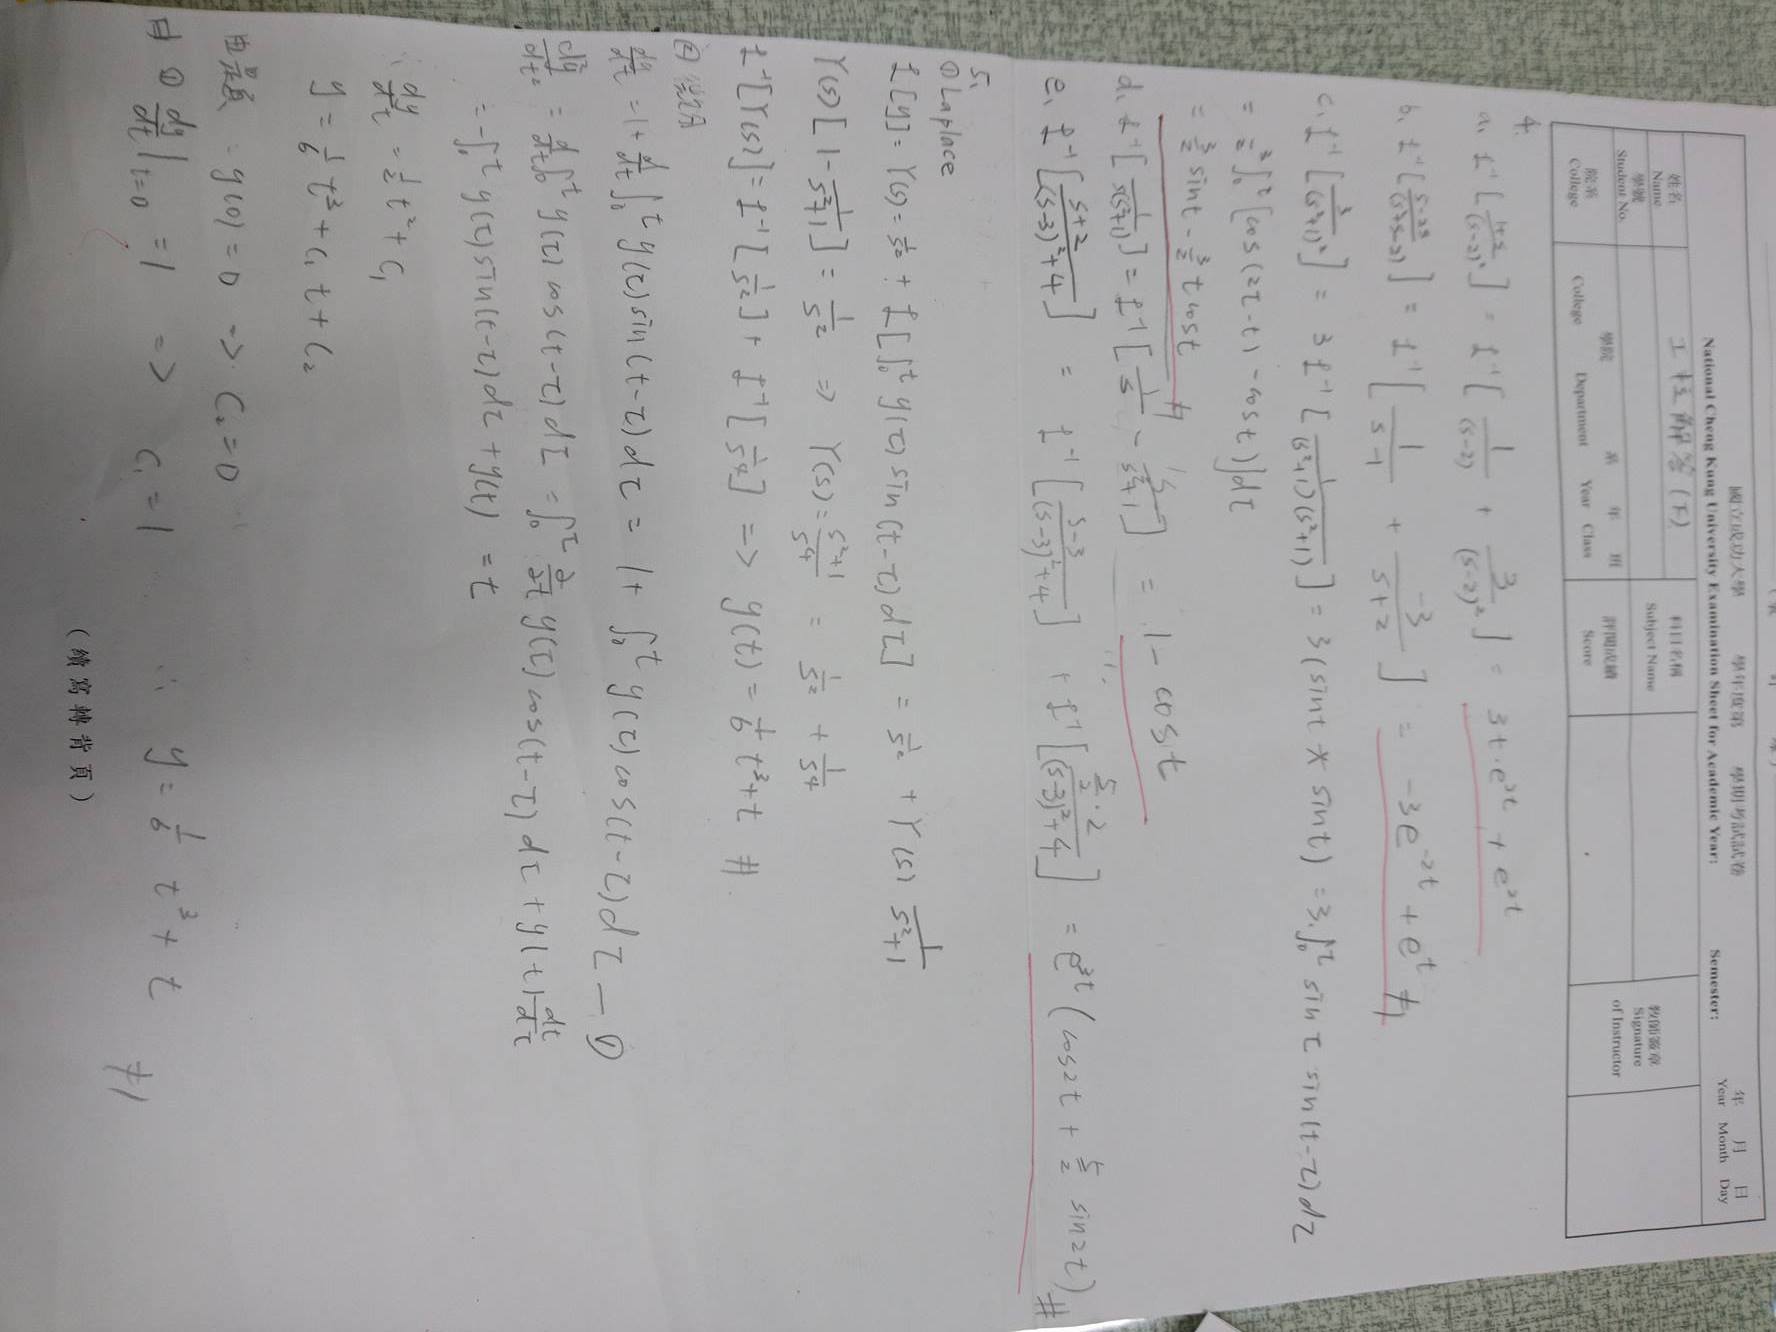 國立成功大學 學年度第 學期考試試卷 年 月 日
National Cheng Kung University Examination Sheet for Academic Year: Semester: Year Month Day
姓名 Name 工程解答(下) 科目名稱 Subject Name 教師簽章 Signature of Instructor
學號 Student No.
院系 College 學院 College 系 Department 年 Year 班 Class 評閱成績 Score
4.
a. £⁻¹[(1+s)/(s-2)²] = £⁻¹[1/(s-2) + 3/(s-2)²] = 3t·e²ᵗ + e²ᵗ
b. £⁻¹[(5-2s)/(s²+s-2)] = £⁻¹[1/(s-1) + -3/(s+2)] = -3e⁻²ᵗ + eᵗ #
c. £⁻¹[3/(s²+1)²] = 3£⁻¹[1/((s²+1)(s²+1))] = 3(sint * sint) = 3·∫₀ᵗ sinτ sin(t-τ)dτ
= 3/2 ∫₀ᵗ[cos(2τ-t) - cost)]dτ
= 3/2 sint - 3/2 t cost #
d. £⁻¹[1/(s(s²+1))] = £⁻¹[1/s - s/(s²+1)] = 1 - cost
e. £⁻¹[(s+2)/((s-3)²+4)] = £⁻¹[(s-3)/((s-3)²+4)] + £⁻¹[(5/2·2)/((s-3)²+4)] = e³ᵗ(cos2t + 5/2 sin2t) #
5.
① Laplace
£[y] = Y(s) = 1/s² + £[∫₀ᵗ y(τ)sin(t-τ)dτ] = 1/s² + Y(s) 1/(s²+1)
Y(s)[1 - 1/(s²+1)] = 1/s² => Y(s) = (s²+1)/s⁴ = 1/s² + 1/s⁴
£⁻¹[Y(s)] = £⁻¹[1/s²] + £⁻¹[1/s⁴] => y(t) = 1/6 t³ + t #
② 微分
dy/dt = 1 + d/dt ∫₀ᵗ y(τ)sin(t-τ)dτ = 1 + ∫₀ᵗ y(τ)cos(t-τ)dτ — ①
d²y/dt² = d/dt ∫₀ᵗ y(τ)cos(t-τ)dτ = ∫₀ᵗ ∂/∂t y(τ)cos(t-τ)dτ + y(t) dt/dτ
= -∫₀ᵗ y(τ)sin(t-τ)dτ + y(t) = t
∴ dy/dt = 1/2 t² + C₁
y = 1/6 t³ + C₁t + C₂
由題 : y(0) = 0 -> C₂ = 0
由 ① dy/dt|t=0 = 1 => C₁ = 1 ∴ y = 1/6 t³ + t #
(續寫轉背頁)